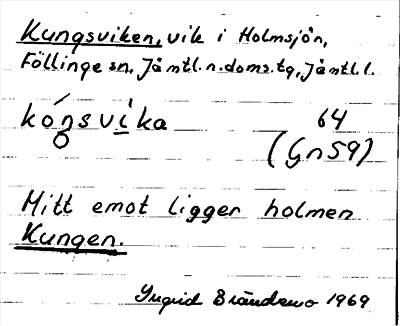 Kungsviken, vik i Holmsjön,
Föllinge sn, Jämtl. n. doms. tg, Jämtl. l.
kóŋsvi̲ka 64
(Gn 59)
Mitt emot ligger holmen
Kungen.
Ingrid Brändemo 1969